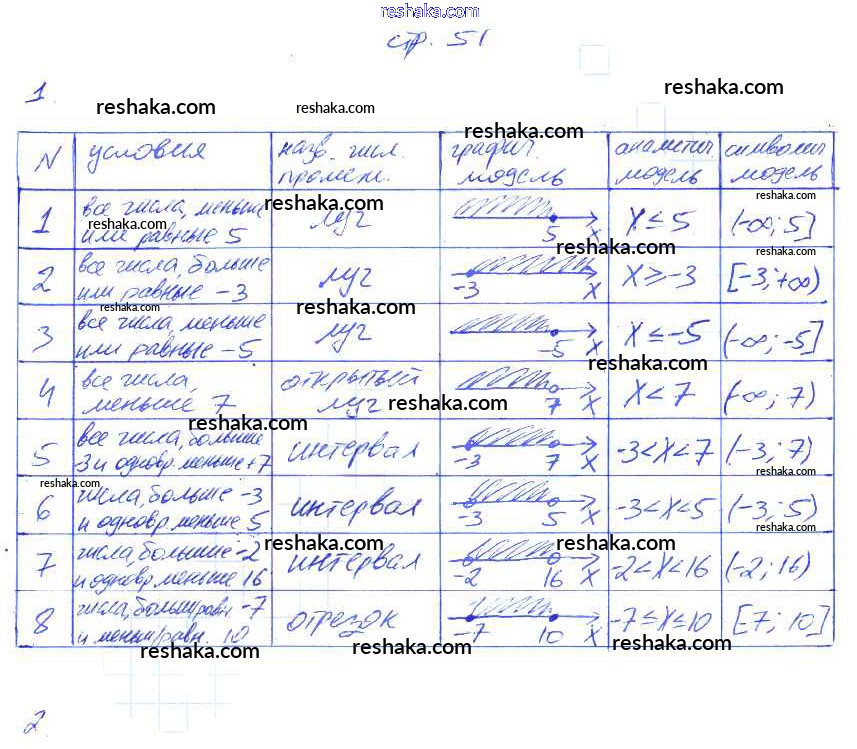 reshaka.com
стр. 51
1.
reshaka.com reshaka.com reshaka.com
reshaka.com
N условия назв. числ. промеж. графич. модель аналитич. модель символич. модель
reshaka.com reshaka.com
1 все числа, меньше или равные 5 луч 5 X X ≤ 5 (-∞; 5]
reshaka.com reshaka.com reshaka.com
2 все числа, больше или равные -3 луч -3 X X ≥ -3 [-3; +∞)
reshaka.com reshaka.com reshaka.com
3 все числа, меньше или равные -5 луч -5 X X ≤ -5 (-∞; -5]
reshaka.com
4 все числа, меньше 7 открытый луч 7 X X < 7 (-∞; 7)
reshaka.com reshaka.com reshaka.com
5 все числа, больше -3 и одновр. меньше +7 интервал -3 7 X -3 < X < 7 (-3; 7)
reshaka.com reshaka.com reshaka.com
6 числа, больше -3 и одновр меньше 5 интервал -3 5 X -3 < X < 5 (-3; 5)
reshaka.com reshaka.com reshaka.com
7 числа, больше -2 и одновр меньше 16 интервал -2 16 X -2 < X < 16 (-2; 16)
reshaka.com reshaka.com
8 числа, больш/равн. -7 и меньш/равн. 10 отрезок -7 10 X -7 ≤ X ≤ 10 [7; 10]
reshaka.com reshaka.com reshaka.com
2